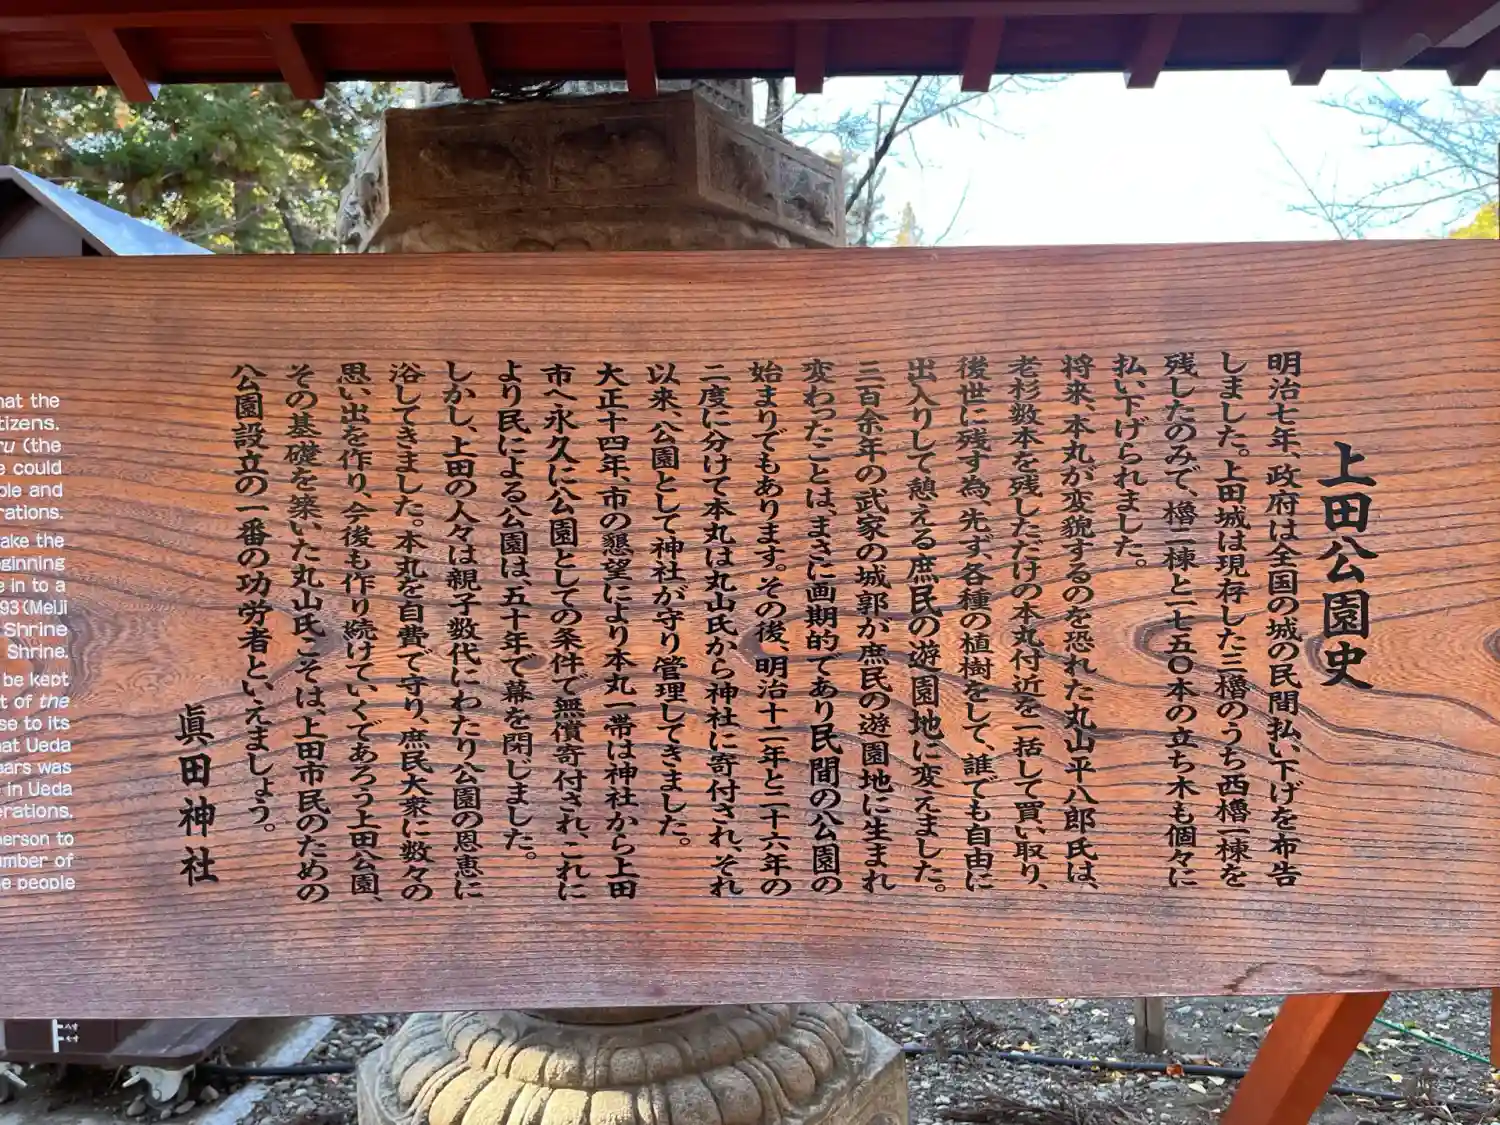 上田公園史
明治七年、政府は全国の城の民間払い下げを布告
しました。上田城は現存した三櫓のうち西櫓一棟を
残したのみで、櫓二棟と一七五〇本の立ち木も個々に
払い下げられました。
将来、本丸が変貌するのを恐れた丸山平八郎氏は、
老杉数本を残しただけの本丸付近を一括して買い取り、
後世に残す為、先ず、各種の植樹をして、誰でも自由に
出入りして憩える庶民の遊園地に変えました。
三百余年の武家の城郭が庶民の遊園地に生まれ
変わったことは、まさに画期的であり民間の公園の
始まりでもあります。その後、明治十二年と二十六年の
二度に分けて本丸は丸山氏から神社に寄付され、それ
以来、公園として神社が守り管理してきました。
大正十四年、市の懇望により本丸一帯は神社から上田
市へ永久に公園としての条件で無償寄付され、これに
より民による公園は、五十年で幕を閉じました。
しかし、上田の人々は親子数代にわたり公園の恩恵に
浴してきました。本丸を自費で守り、庶民大衆に数々の
思い出を作り、今後も作り続けていくであろう上田公園、
その基礎を築いた丸山氏こそは、上田市民のための
公園設立の一番の功労者といえましょう。
眞田神社
hat the
tizens.
ru (the
e could
ple and
rations.
ake the
ginning
e in to a
93 (Meiji
Shrine
Shrine.
be kept
t of the
se to its
hat Ueda
ears was
in Ueda
erations.
person to
umber of
e people